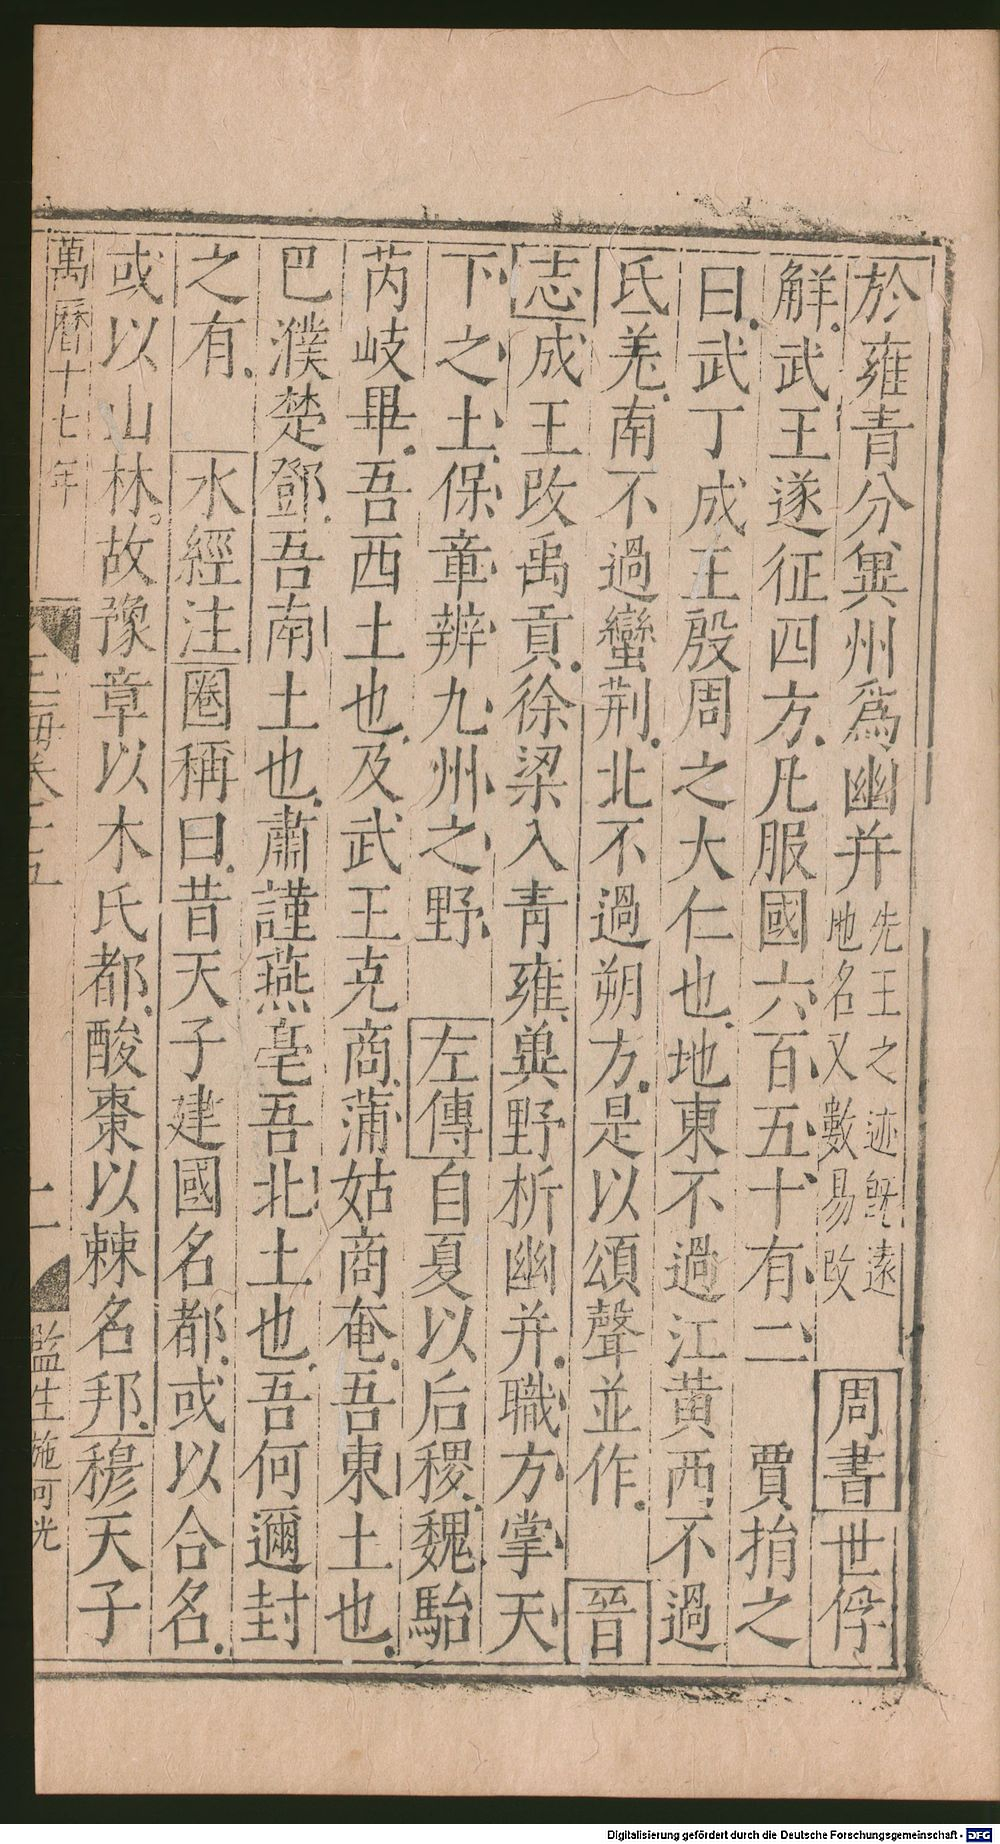 於雍青分兾州爲幽并先王之迹旣遠地名又數易改周書世俘
解武王遂征四方凡服國六百五十有二賈捐之
曰武丁成王殷周之大仁也地東不過江黄西不過
氐羌南不過蠻荆北不過朔方是以頌聲並作晉
志成王改禹貢徐梁入青雍兾野析幽并職方掌天
下之土保章辨九州之野左傳自夏以后稷魏駘
芮岐畢吾西土也及武王克商蒲姑商奄吾東土也
巴濮楚鄧吾南土也肅謹燕亳吾北土也吾何邇封
之有水經注圈稱曰昔天子建國名都或以合名
或以山林故豫章以木氏都酸棗以棘名邦穆天子
萬曆十七年
玉海卷十五
二
監生施可光
Digitalisierung gefördert durch die Deutsche Forschungsgemeinschaft - DFG